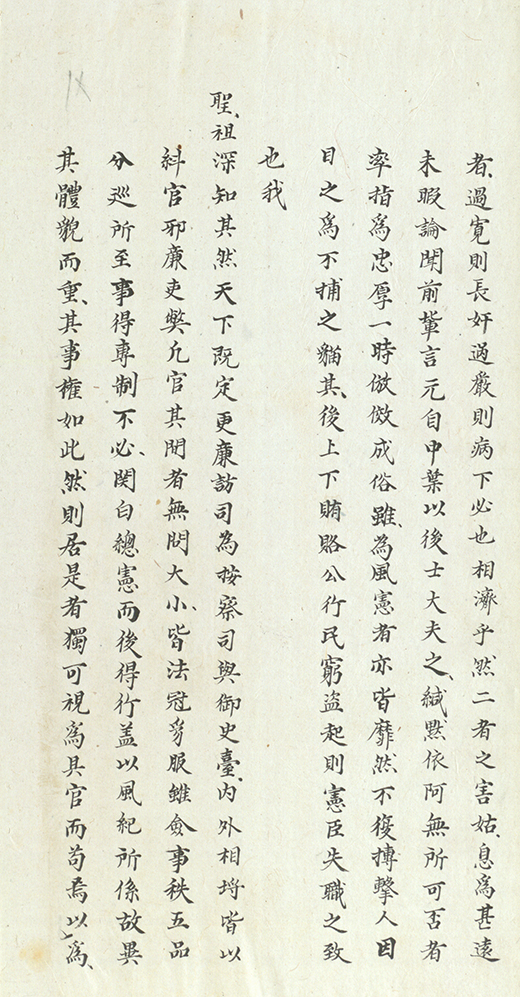 者過寬則長奸過嚴則病下必也相濟乎然二者之害姑息爲甚遠
未暇論聞前輩言元自中葉以後士大夫之緘默依阿無所可否者
率指爲忠厚一時倣傚成俗雖為風憲者亦皆靡然不復摶擊人因
目之爲不捕之貓其後上下賄賂公行民窮盜起則憲臣失職之致
也我
聖祖深知其然天下既定更廉訪司為按察司與御史臺內外相埒皆以
糾官邪廉吏弊凡官其間者無問大小皆法冠豸服雖僉事秩五品
分巡所至事得專制不必関白總憲而後得行盖以風紀所係故異
其體貌而重其事權如此然則居是者獨可視爲具官而苟焉以爲